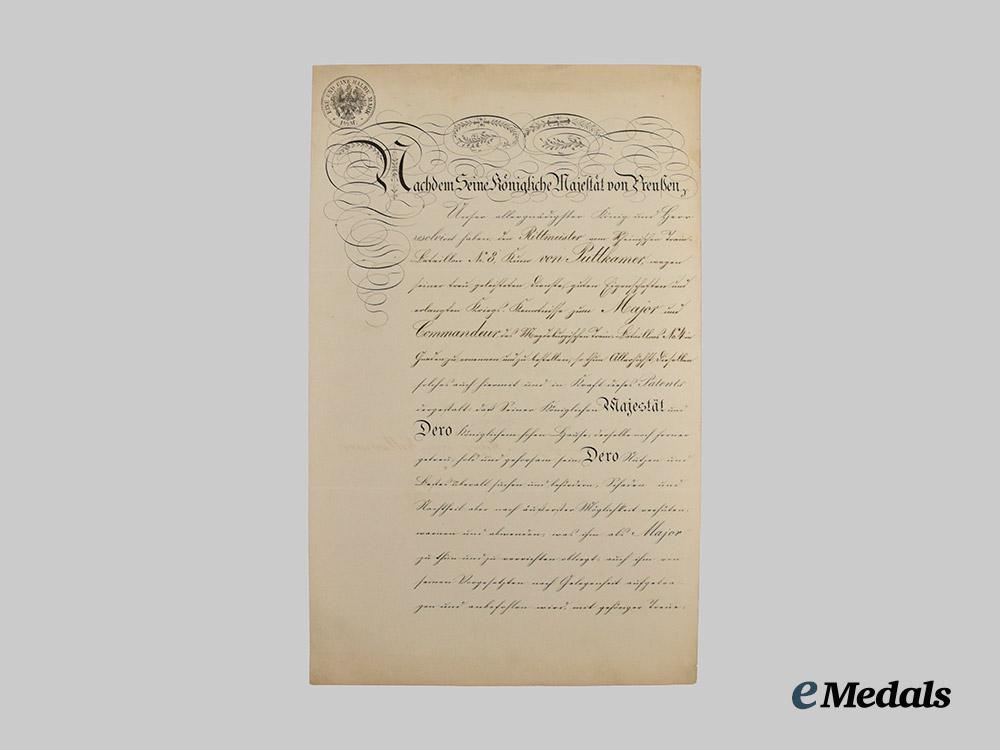 EINE UND EINE HALBE MARK
1½ M.
Nachdem Seine Königliche Majestät von Preußen,
Unser allergnädigster König und Herr
resolvirt haben, den Rittmeister vom Rheinischen Train-
Bataillon No 8, von Puttkamer, wegen
seiner treu geleisteten Dienste, guten Eigenschaften und
erlangten Kriegs-Kenntnisse zum Major und
Commandeur des Magdeburgischen Train-Bataillons No 4 in
Gnaden zu ernennen und zu bestellen, so thun Allerhöchst dieselben
solches auch hiermit und in Kraft dieses Patents
dergestalt, daß Seiner Königlichen Majestät und
Dero Königlichem hohen Hause, derselbe noch ferner
getreu, hold und gehorsam sein, Dero Nutzen und
Bestes überall suchen und befördern, Schaden und
Nachtheil aber nach äußerster Möglichkeit verhüten,
warnen und abwenden, was ihm als Major
zu thun und zu verrichten obliegt, auch ihm von
seinen Vorgesetzten nach Gelegenheit aufgetra-
gen und anbefohlen wird, mit gehöriger Treue,
eMedals